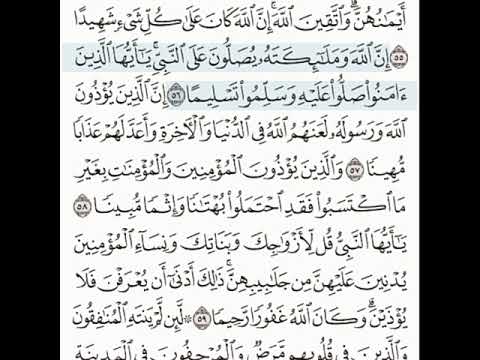 أَيْمَٰنُهُنَّ ۗ وَٱتَّقِينَ ٱللَّهَ ۚ إِنَّ ٱللَّهَ كَانَ عَلَىٰ كُلِّ شَىْءٍ شَهِيدًا
٥٥ إِنَّ ٱللَّهَ وَمَلَٰٓئِكَتَهُۥ يُصَلُّونَ عَلَى ٱلنَّبِىِّ ۚ يَٰٓأَيُّهَا ٱلَّذِينَ
ءَامَنُوا۟ صَلُّوا۟ عَلَيْهِ وَسَلِّمُوا۟ تَسْلِيمًا ٥٦ إِنَّ ٱلَّذِينَ يُؤْذُونَ
ٱللَّهَ وَرَسُولَهُۥ لَعَنَهُمُ ٱللَّهُ فِى ٱلدُّنْيَا وَٱلْءَاخِرَةِ وَأَعَدَّ لَهُمْ عَذَابًا
مُّهِينًا ٥٧ وَٱلَّذِينَ يُؤْذُونَ ٱلْمُؤْمِنِينَ وَٱلْمُؤْمِنَٰتِ بِغَيْرِ
مَا ٱكْتَسَبُوا۟ فَقَدِ ٱحْتَمَلُوا۟ بُهْتَٰنًا وَإِثْمًا مُّبِينًا ٥٨
يَٰٓأَيُّهَا ٱلنَّبِىُّ قُل لِّأَزْوَٰجِكَ وَبَنَاتِكَ وَنِسَآءِ ٱلْمُؤْمِنِينَ
يُدْنِينَ عَلَيْهِنَّ مِن جَلَٰبِيبِهِنَّ ۚ ذَٰلِكَ أَدْنَىٰٓ أَن يُعْرَفْنَ فَلَا
يُؤْذَيْنَ ۗ وَكَانَ ٱللَّهُ غَفُورًا رَّحِيمًا ٥٩ ۞ لَّئِن لَّمْ يَنتَهِ ٱلْمُنَٰفِقُونَ
وَٱلَّذِينَ فِى قُلُوبِهِم مَّرَضٌ وَٱلْمُرْجِفُونَ فِى ٱلْمَدِينَةِ